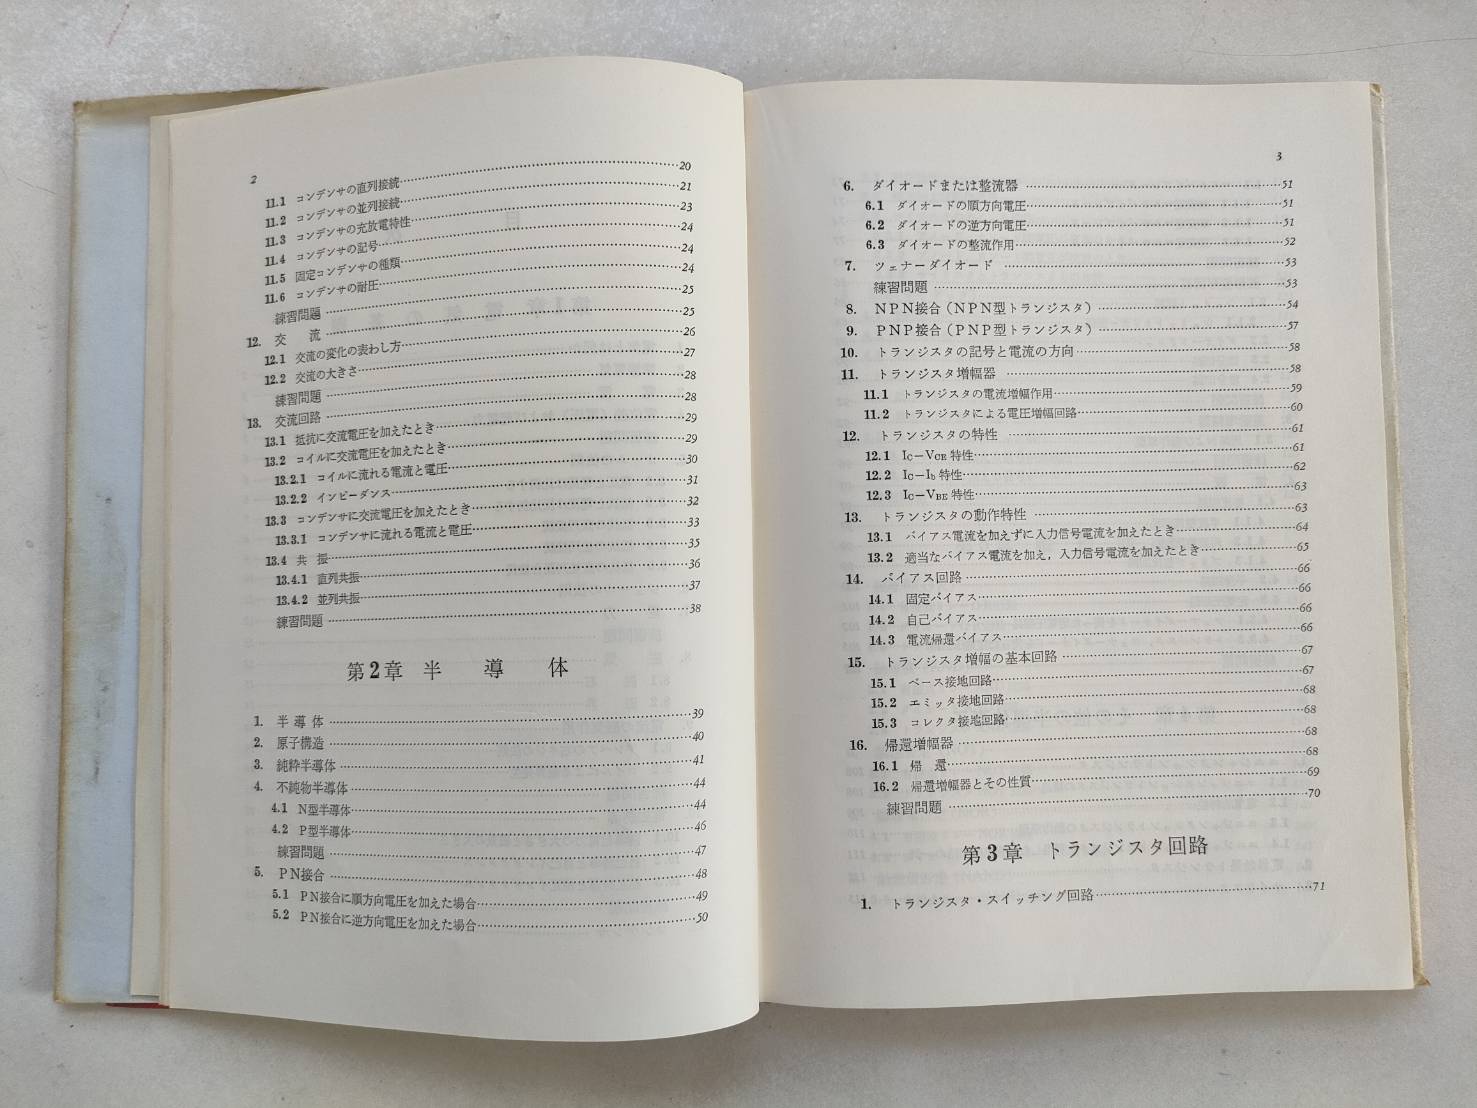 2
11.1 コンデンサの直列接続……20
11.2 コンデンサの並列接続……21
11.3 コンデンサの充放電特性……23
11.4 コンデンサの記号……24
11.5 固定コンデンサの種類……24
11.6 コンデンサの耐圧……24
練習問題……25
12. 交 流……25
12.1 交流の変化の表わし方……26
12.2 交流の大きさ……27
練習問題……28
13. 交流回路……28
13.1 抵抗に交流電圧を加えたとき……29
13.2 コイルに交流電圧を加えたとき……29
13.2.1 コイルに流れる電流と電圧……30
13.2.2 インピーダンス……31
13.3 コンデンサに交流電圧を加えたとき……32
13.3.1 コンデンサに流れる電流と電圧……33
13.4 共 振……35
13.4.1 直列共振……36
13.4.2 並列共振……37
練習問題……38
第2章 半 導 体
1. 半 導 体……39
2. 原子構造……40
3. 純粋半導体……41
4. 不純物半導体……44
4.1 N型半導体……44
4.2 P型半導体……46
練習問題……47
5. PN接合……48
5.1 PN接合に順方向電圧を加えた場合……49
5.2 PN接合に逆方向電圧を加えた場合……50
3
6. ダイオードまたは整流器……51
6.1 ダイオードの順方向電圧……51
6.2 ダイオードの逆方向電圧……51
6.3 ダイオードの整流作用……52
7. ツェナーダイオード……53
練習問題……53
8. NPN接合(NPN型トランジスタ)……54
9. PNP接合(PNP型トランジスタ)……57
10. トランジスタの記号と電流の方向……58
11. トランジスタ増幅器……58
11.1 トランジスタの電流増幅作用……59
11.2 トランジスタによる電圧増幅回路……60
12. トランジスタの特性……61
12.1 IC−VCE 特性……61
12.2 IC−Ib 特性……62
12.3 IC−VBE 特性……63
13. トランジスタの動作特性……63
13.1 バイアス電流を加えずに入力信号電流を加えたとき……64
13.2 適当なバイアス電流を加え,入力信号電流を加えたとき……65
14. バイアス回路……66
14.1 固定バイアス……66
14.2 自己バイアス……66
14.3 電流帰還バイアス……66
15. トランジスタ増幅の基本回路……67
15.1 ベース接地回路……67
15.2 エミッタ接地回路……68
15.3 コレクタ接地回路……68
16. 帰還増幅器……68
16.1 帰 還……68
16.2 帰還増幅器とその性質……69
練習問題……70
第3章 トランジスタ回路
1. トランジスタ・スイッチング回路……71